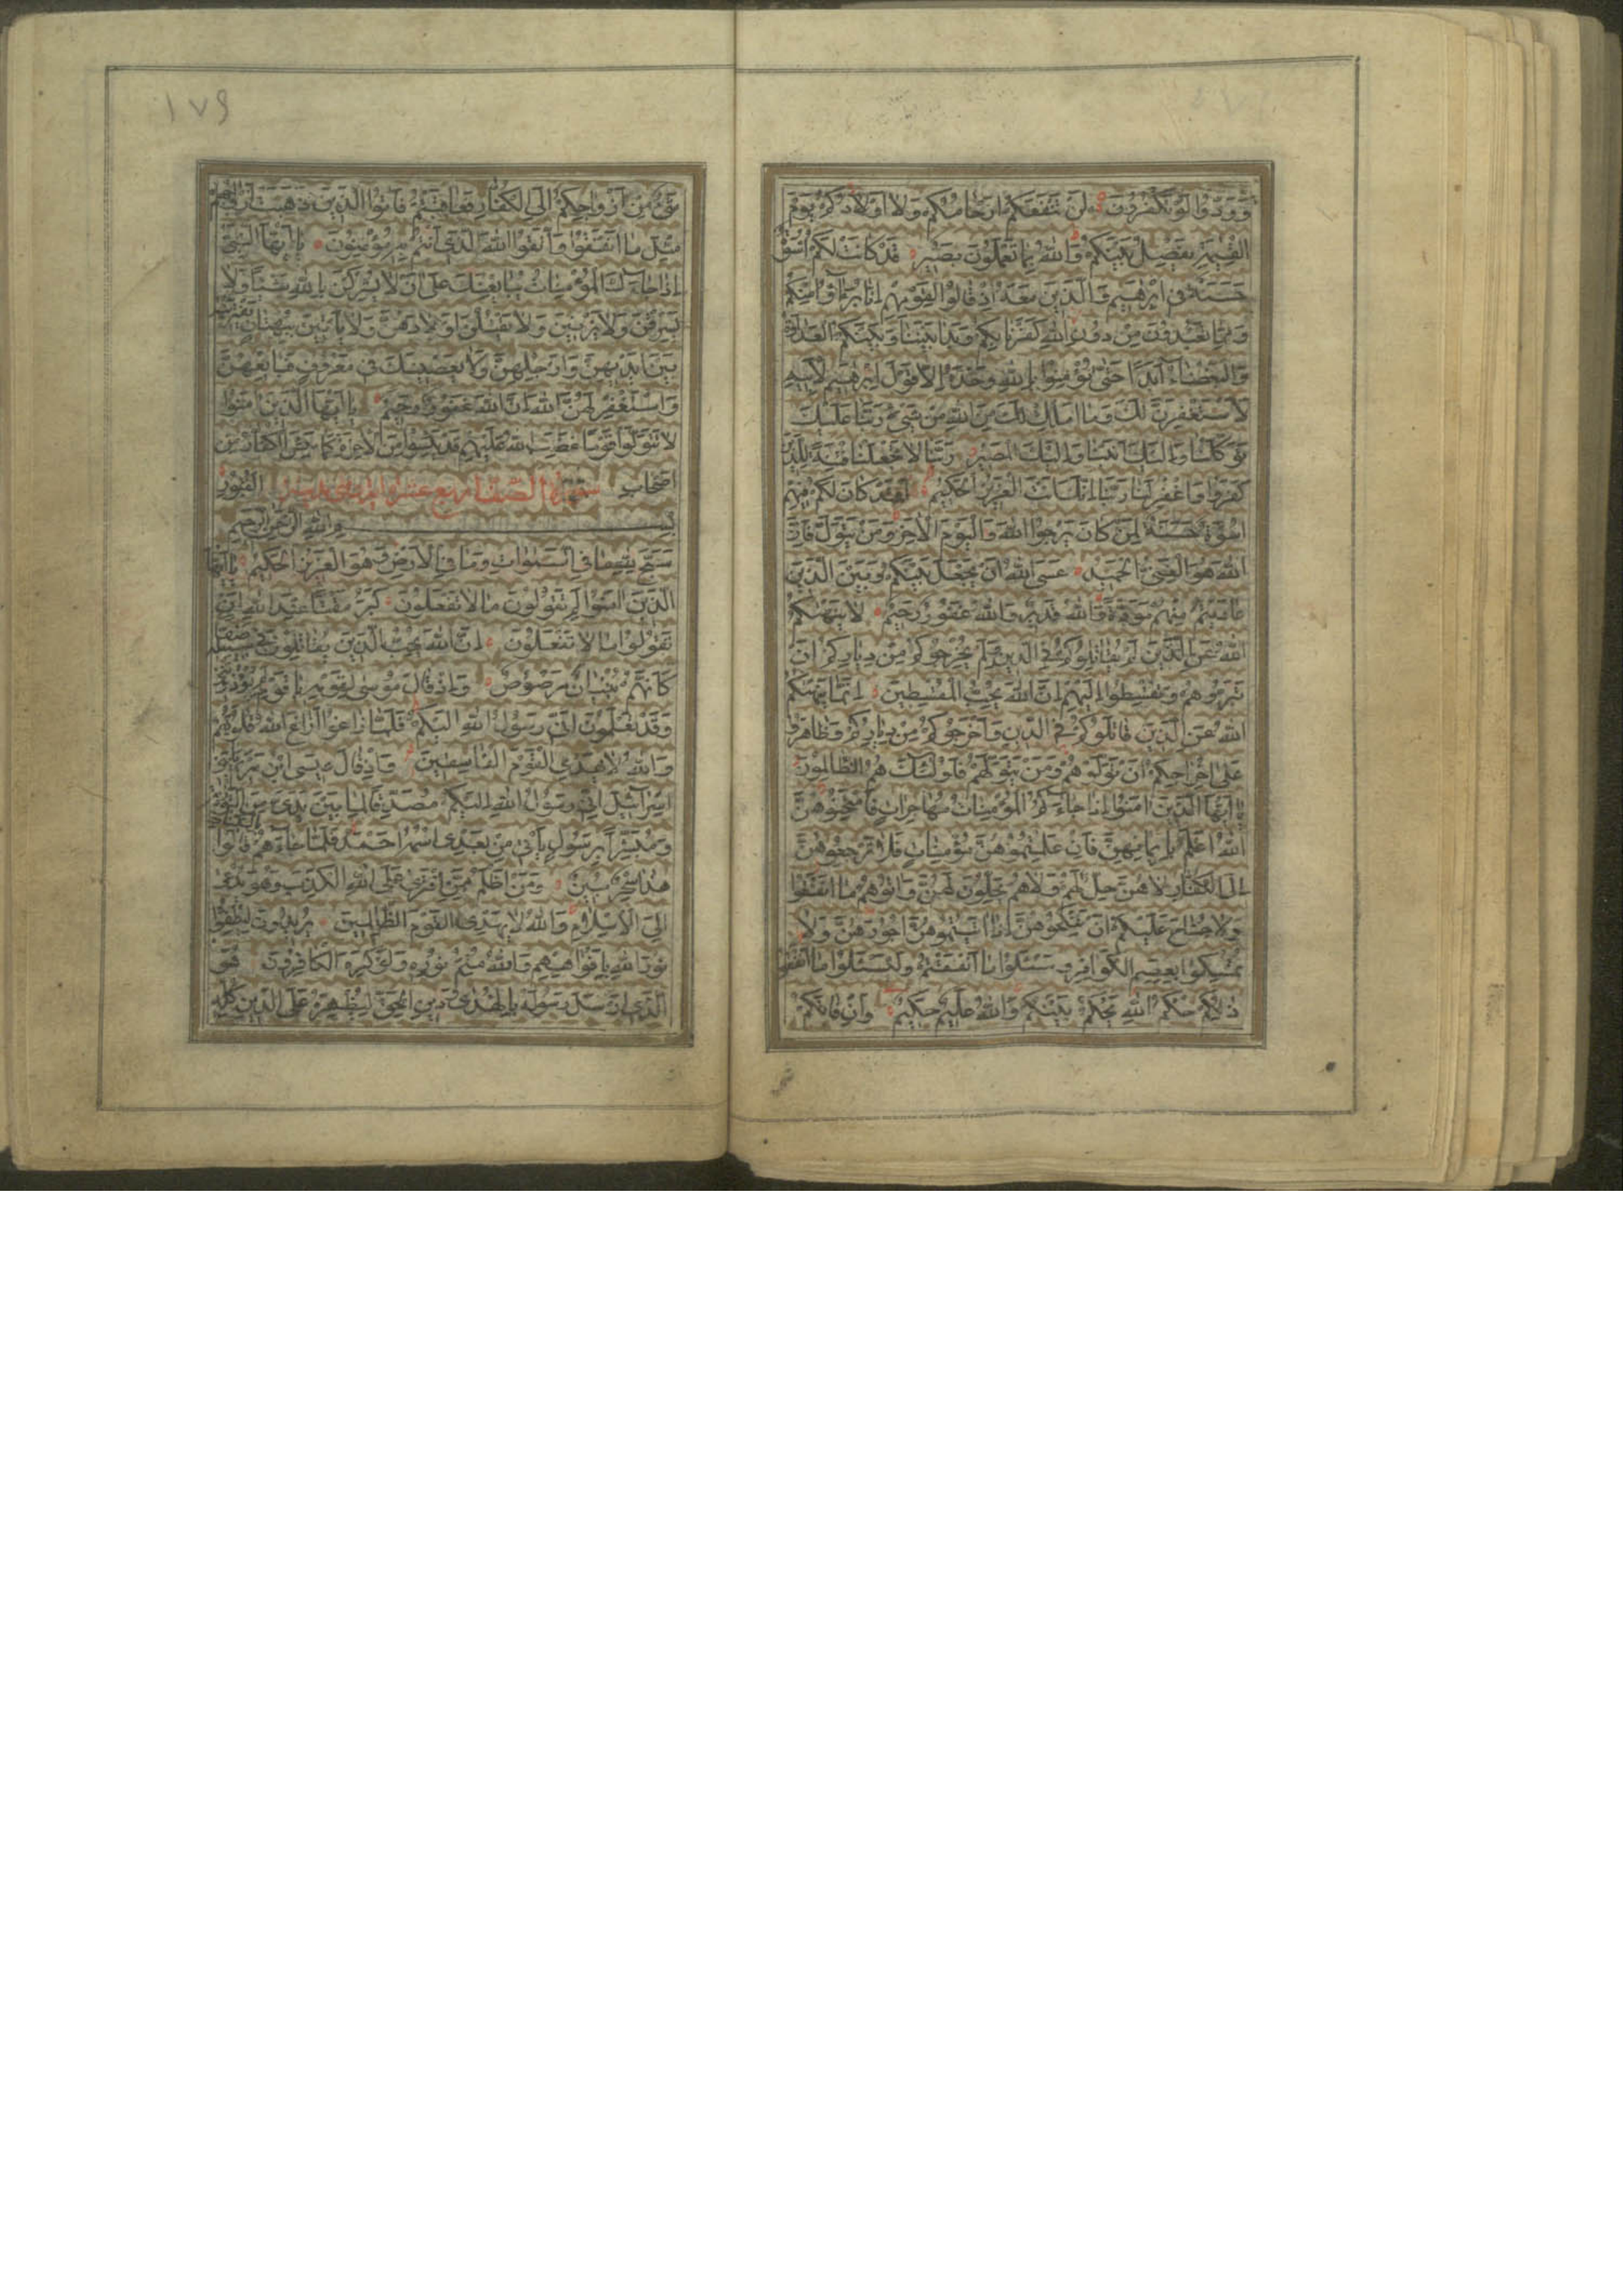 وَوَدُّوا لَوْ تَكْفُرُونَ لَنْ تَنْفَعَكُمْ اَرْحَامُكُمْ وَلَا اَوْلَادُكُمْ يَوْمَ
الْقِيمَةِ يَفْصِلُ بَيْنَكُمْ وَاللهُ بِمَا تَعْمَلُونَ بَصِيرٌ قَدْ كَانَتْ لَكُمْ اُسْوَةٌ
حَسَنَةٌ فِى اِبْرهِيمَ وَالَّذِينَ مَعَهُ اِذْ قَالُوا لِقَوْمِهِمْ اِنَّا بُرَءآؤُا مِنْكُمْ
وَمِمَّا تَعْبُدُونَ مِنْ دُونِ اللهِ كَفَرْنَا بِكُمْ وَبَدَا بَيْنَنَا وَبَيْنَكُمُ الْعَدَاوَةُ
وَالْبَغْضَاءُ اَبَدًا حَتّى تُؤْمِنُوا بِاللهِ وَحْدَهُ اِلَّا قَوْلَ اِبْرهِيمَ لِاَبِيهِ
لَاَسْتَغْفِرَنَّ لَكَ وَمَا اَمْلِكُ لَكَ مِنَ اللهِ مِنْ شَىْءٍ رَبَّنَا عَلَيْكَ
تَوَكَّلْنَا وَاِلَيْكَ اَنَبْنَا وَاِلَيْكَ الْمَصِيرُ رَبَّنَا لَا تَجْعَلْنَا فِتْنَةً لِلَّذِينَ
كَفَرُوا وَاغْفِرْ لَنَا رَبَّنَا اِنَّكَ اَنْتَ الْعَزِيزُ الْحَكِيمُ لَقَدْ كَانَ لَكُمْ فِيهِمْ
اُسْوَةٌ حَسَنَةٌ لِمَنْ كَانَ يَرْجُوا اللهَ وَالْيَوْمَ الْاخِرَ وَمَنْ يَتَوَلَّ فَاِنَّ
اللهَ هُوَ الْغَنِىُّ الْحَمِيدُ عَسَى اللهُ اَنْ يَجْعَلَ بَيْنَكُمْ وَبَيْنَ الَّذِينَ
عَادَيْتُمْ مِنْهُمْ مَوَدَّةً وَاللهُ قَدِيرٌ وَاللهُ غَفُورٌ رَحِيمٌ لَا يَنْهيكُمُ
اللهُ عَنِ الَّذِينَ لَمْ يُقَاتِلُوكُمْ فِى الدِّينِ وَلَمْ يُخْرِجُوكُمْ مِنْ دِيَارِكُمْ اَنْ
تَبَرُّوهُمْ وَتُقْسِطُوا اِلَيْهِمْ اِنَّ اللهَ يُحِبُّ الْمُقْسِطِينَ اِنَّمَا يَنْهيكُمُ
اللهُ عَنِ الَّذِينَ قَاتَلُوكُمْ فِى الدِّينِ وَاَخْرَجُوكُمْ مِنْ دِيَارِكُمْ وَظَاهَرُوا
عَلى اِخْرَاجِكُمْ اَنْ تَوَلَّوْهُمْ وَمَنْ يَتَوَلَّهُمْ فَاُولئِكَ هُمُ الظَّالِمُونَ
يَا اَيُّهَا الَّذِينَ امَنُوا اِذَا جَاءَكُمُ الْمُؤْمِنَاتُ مُهَاجِرَاتٍ فَامْتَحِنُوهُنَّ
اَللهُ اَعْلَمُ بِاِيمَانِهِنَّ فَاِنْ عَلِمْتُمُوهُنَّ مُؤْمِنَاتٍ فَلَا تَرْجِعُوهُنَّ
اِلَى الْكُفَّارِ لَاهُنَّ حِلٌّ لَهُمْ وَلَاهُمْ يَحِلُّونَ لَهُنَّ وَاتُوهُمْ مَا اَنْفَقُوا
وَلَا جُنَاحَ عَلَيْكُمْ اَنْ تَنْكِحُوهُنَّ اِذَا اتَيْتُمُوهُنَّ اُجُورَهُنَّ وَلَا
تُمْسِكُوا بِعِصَمِ الْكَوَافِرِ وَسْئَلُوا مَا اَنْفَقْتُمْ وَلْيَسْئَلُوا مَا اَنْفَقُوا
ذلِكُمْ حُكْمُ اللهِ يَحْكُمُ بَيْنَكُمْ وَاللهُ عَلِيمٌ حَكِيمٌ وَاِنْ فَاتَكُمْ
١٧٩
شَىْءٌ مِنْ اَزْوَاجِكُمْ اِلَى الْكُفَّارِ فَعَاقَبْتُمْ فَاتُوا الَّذِينَ ذَهَبَتْ اَزْوَاجُهُمْ
مِثْلَ مَا اَنْفَقُوا وَاتَّقُوا اللهَ الَّذِى اَنْتُمْ بِهِ مُؤْمِنُونَ يَا اَيُّهَا النَّبِىُّ
اِذَا جَاءَكَ الْمُؤْمِنَاتُ يُبَايِعْنَكَ عَلى اَنْ لَا يُشْرِكْنَ بِاللهِ شَيْئًا وَلَا
يَسْرِقْنَ وَلَا يَزْنِينَ وَلَا يَقْتُلْنَ اَوْلَادَهُنَّ وَلَا يَأْتِينَ بِبُهْتَانٍ يَفْتَرِينَهُ
بَيْنَ اَيْدِيهِنَّ وَاَرْجُلِهِنَّ وَلَا يَعْصِينَكَ فِى مَعْرُوفٍ فَبَايِعْهُنَّ
وَاسْتَغْفِرْ لَهُنَّ اللهَ اِنَّ اللهَ غَفُورٌ رَحِيمٌ يَا اَيُّهَا الَّذِينَ امَنُوا
لَا تَتَوَلَّوْا قَوْمًا غَضِبَ اللهُ عَلَيْهِمْ قَدْ يَئِسُوا مِنَ الْاخِرَةِ كَمَا يَئِسَ الْكُفَّارُ مِنْ
اَصْحَابِ الْقُبُورِ سورة الصف اربع عشر
بِسْمِ اللهِ الرَّحْمنِ الرَّحِيمِ
سَبَّحَ لِلّهِ مَا فِى السَّموَاتِ وَمَا فِى الْاَرْضِ وَهُوَ الْعَزِيزُ الْحَكِيمُ يَا اَيُّهَا
الَّذِينَ امَنُوا لِمَ تَقُولُونَ مَا لَا تَفْعَلُونَ كَبُرَ مَقْتًا عِنْدَ اللهِ اَنْ
تَقُولُوا مَا لَا تَفْعَلُونَ اِنَّ اللهَ يُحِبُّ الَّذِينَ يُقَاتِلُونَ فِى سَبِيلِهِ صَفًّا
كَاَنَّهُمْ بُنْيَانٌ مَرْصُوصٌ وَاِذْ قَالَ مُوسى لِقَوْمِهِ يَا قَوْمِ لِمَ تُؤْذُونَنِى
وَقَدْ تَعْلَمُونَ اَنِّى رَسُولُ اللهِ اِلَيْكُمْ فَلَمَّا زَاغُوا اَزَاغَ اللهُ قُلُوبَهُمْ
وَاللهُ لَا يَهْدِى الْقَوْمَ الْفَاسِقِينَ وَاِذْ قَالَ عِيسَى ابْنُ مَرْيَمَ يَا بَنِى
اِسْرَآئِلَ اِنِّى رَسُولُ اللهِ اِلَيْكُمْ مُصَدِّقًا لِمَا بَيْنَ يَدَىَّ مِنَ التَّوْرَيةِ
وَمُبَشِّرًا بِرَسُولٍ يَأْتِى مِنْ بَعْدِى اسْمُهُ اَحْمَدُ فَلَمَّا جَاءَهُمْ بِالْبَيِّنَاتِ قَالُوا
هذَا سِحْرٌ مُبِينٌ وَمَنْ اَظْلَمُ مِمَّنِ افْتَرى عَلَى اللهِ الْكَذِبَ وَهُوَ يُدْعى
اِلَى الْاِسْلَامِ وَاللهُ لَا يَهْدِى الْقَوْمَ الظَّالِمِينَ يُرِيدُونَ لِيُطْفِؤُا
نُورَ اللهِ بِاَفْوَاهِهِمْ وَاللهُ مُتِمُّ نُورِهِ وَلَوْ كَرِهَ الْكَافِرُونَ هُوَ
الَّذِى اَرْسَلَ رَسُولَهُ بِالْهُدى وَدِينِ الْحَقِّ لِيُظْهِرَهُ عَلَى الدِّينِ كُلِّهِ